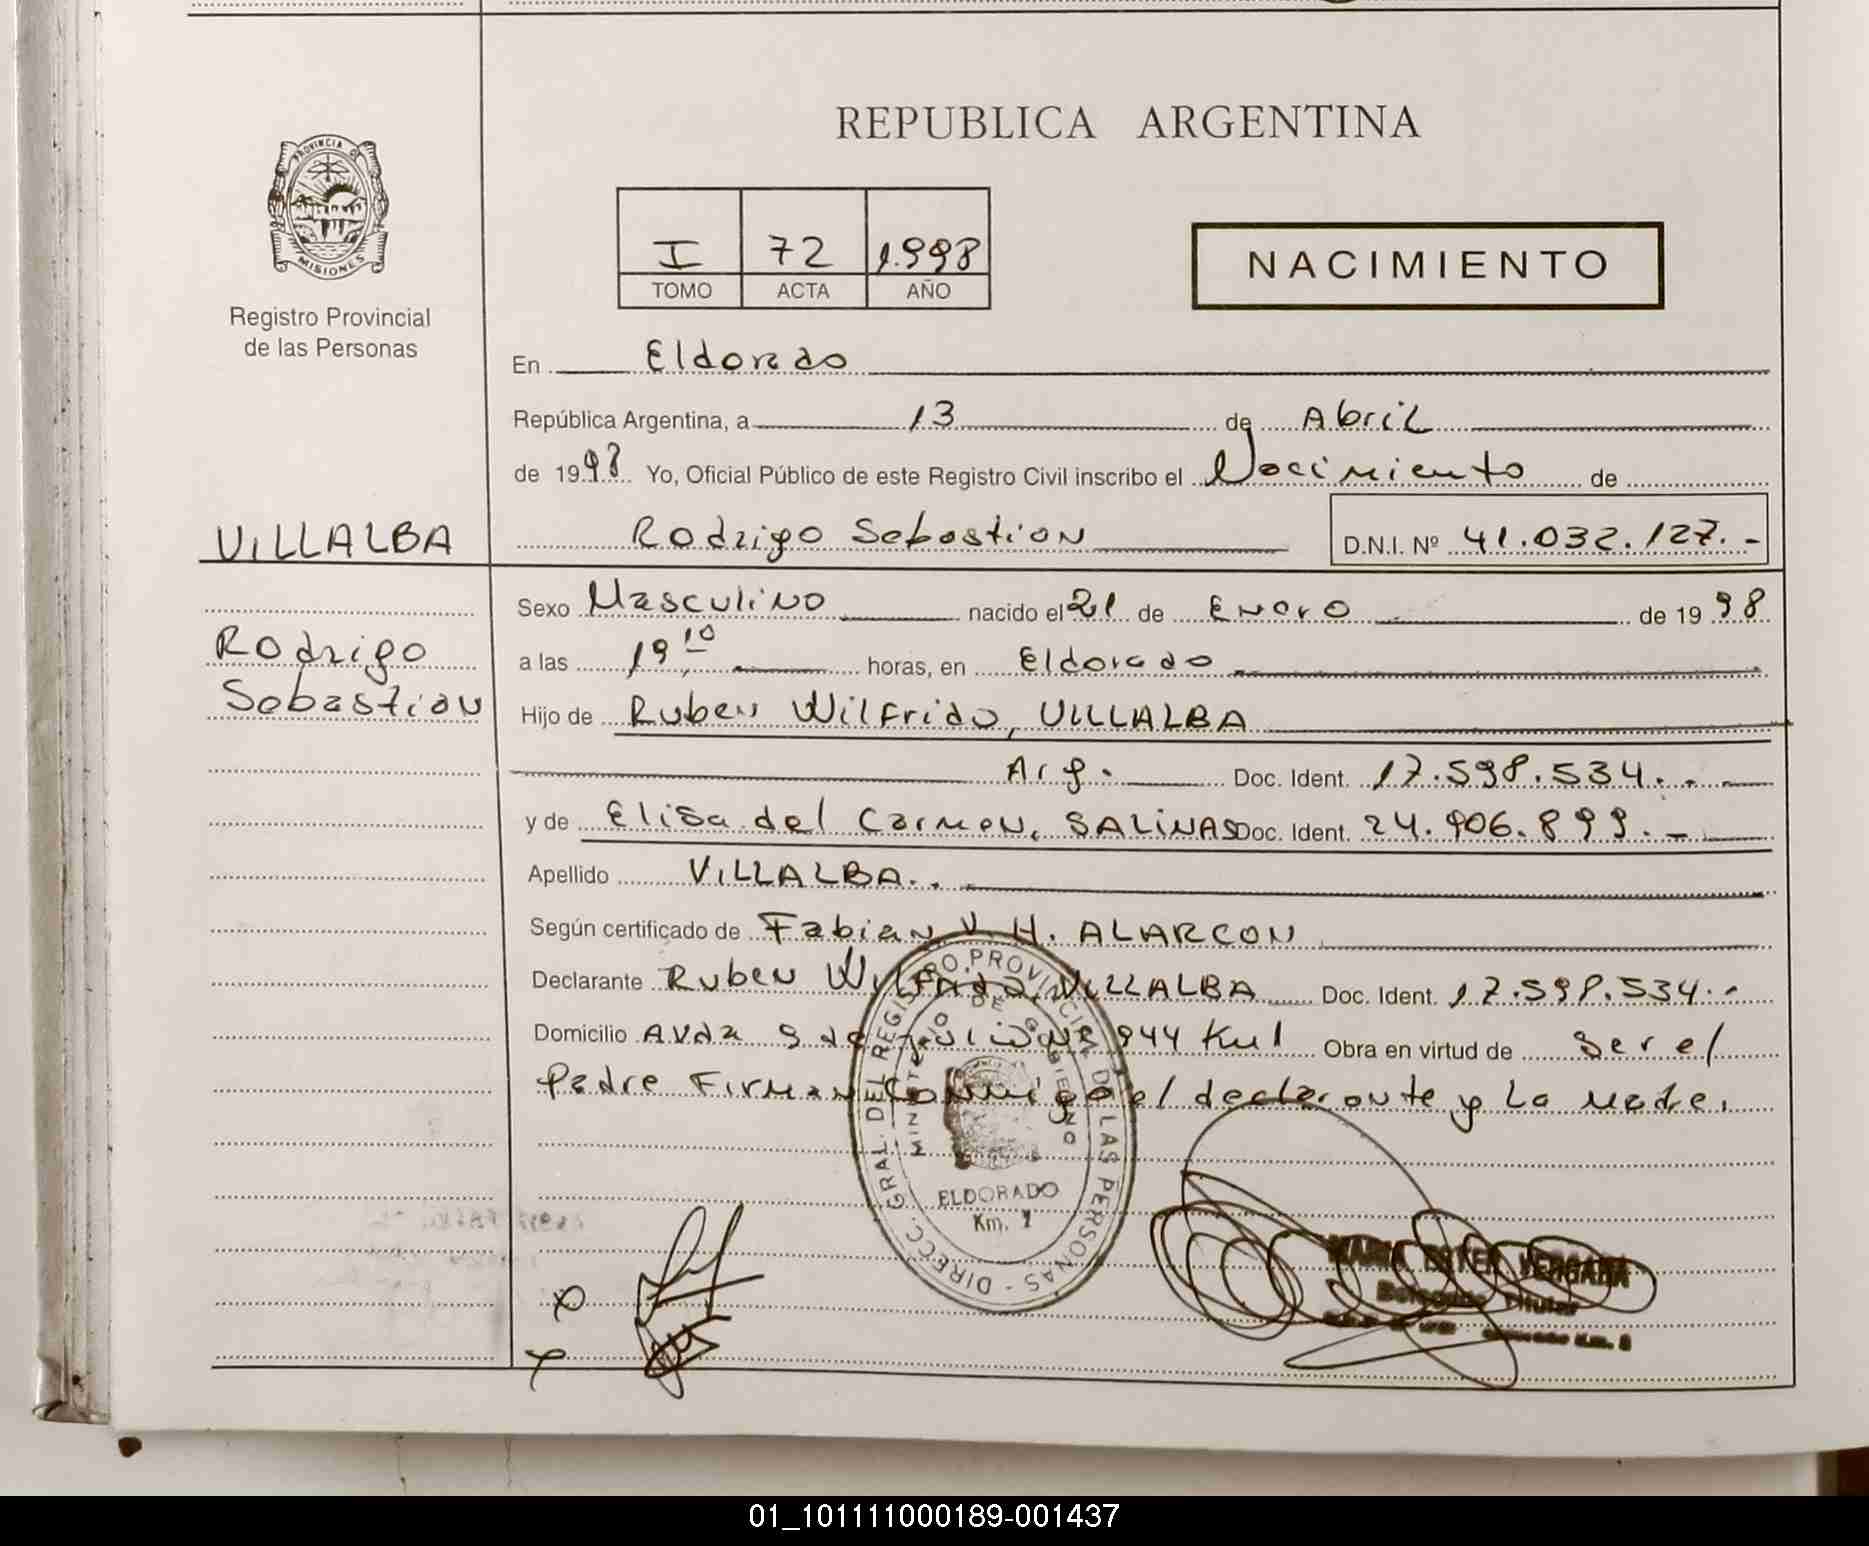 REPUBLICA ARGENTINA
PROVINCIA DE
MISIONES
Registro Provincial
de las Personas
I 72 1.998
TOMO ACTA AÑO
NACIMIENTO
En Eldorado
República Argentina, a 13 de Abril
de 1998 Yo, Oficial Público de este Registro Civil inscribo el Nacimiento de
VILLALBA
Rodrigo Sebastian D.N.I. Nº 41.032.127.-
Rodrigo
Sebastian
Sexo Masculino nacido el 21 de Enero de 1998
a las 19 10 horas, en Eldorado
Hijo de Ruben Wilfrido, VILLALBA
Arg. Doc. Ident. 17.598.534.-
y de Elisa del Carmen, SALINAS Doc. Ident. 24.906.899.-
Apellido VILLALBA.
Según certificado de Fabian V. H. ALARCON
Declarante Ruben Wilfrido, VILLALBA Doc. Ident. 17.598.534.-
Domicilio Avda 9 de Julio 944 Km 1 Obra en virtud de ser el
Padre Firman Conmigo el declarante y La Madre.
DIRECC. GRAL. DEL REGISTRO PROVINCIAL DE LAS PERSONAS -
MINISTERIO DE GOBIERNO
ELDORADO
Km. 1
MARIA ESTER VERGARA
Delegado Titular
01_101111000189-001437